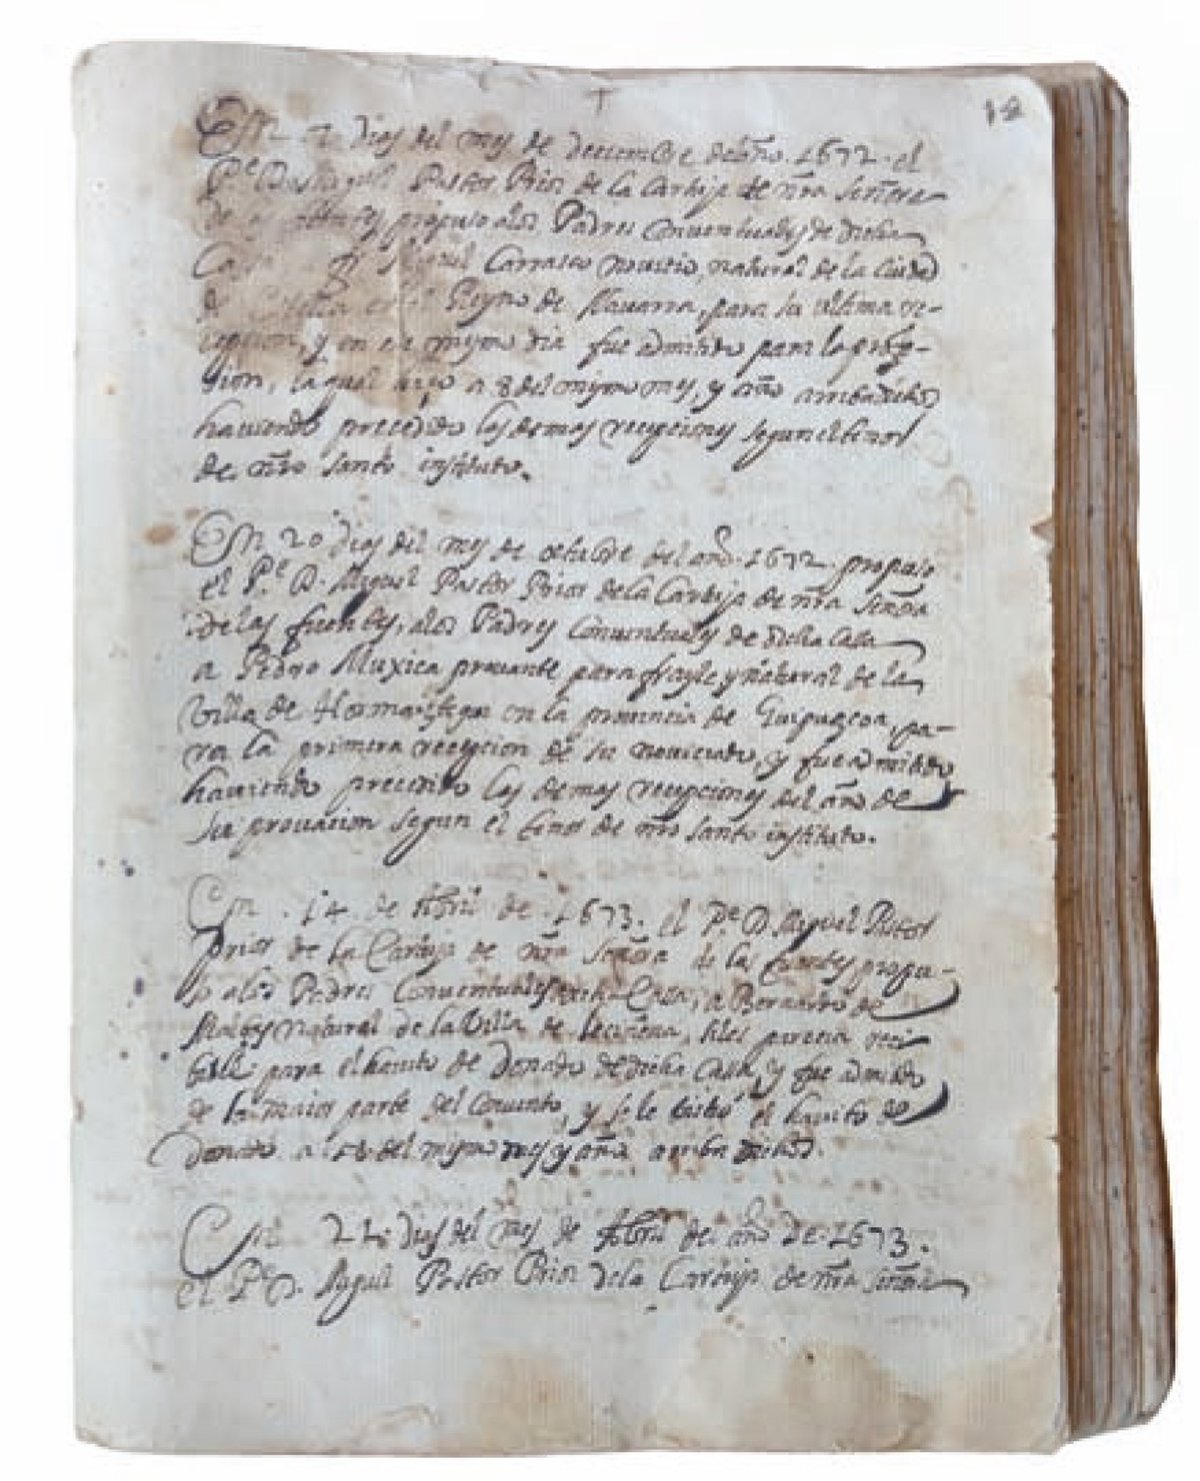 12
En 7 dias del mes de deciembre del año 1672 el
Pe D Miguel Pastor Prior de la Cartuja de nra Señora
de las fuentes propuso alos Padres Conventuales de dicha
Casa a Miguel Carrasco novicio, natural de la Ciudad
de Estella en el Reyno de Navarra, para la ultima re-
cepcion, y en el mismo dia fue admitido para la profe-
sion, la qual hizo a 8 del mismo mes, y año arriba dichos
haviendo precedido las demas recepciones segun el tenor
de nro santo instituto.
En 20 dias del mes de octubre del año 1672 propuso
el Pe D. Miguel Pastor Prior dela Cartuja de nra Señora
de las fuentes, alos Padres Conventuales de dicha Casa
a Pedro Muxica provante para frayle y natural de la
Villa de en la provincia de Guipuzcoa, pa-
ra la primera recepcion de su noviciado, y fue admitido
haviendo precedido las demas recepciones del año de
su provacion segun el tenor de nro santo instituto.
En 14 de Abril de 1673. el Pe D. Miguel Pastor
Prior de la Cartuja de nra Señora de las fuentes propu-
so alos Padres Conventuales Casa, a Bernardo de
natural de la Villa de Leciñena, si les parecia reci-
bille para el havito de Donado de dicha Casa, y fue admitido
de la maior parte del Convento, y se le vistio el havito de
Donado a del mismo mes y año arriba dichos.
En 22 dias del mes de Abril del año de 1673.
el Pe D. Miguel Pastor Prior dela Cartuja de nra Señora